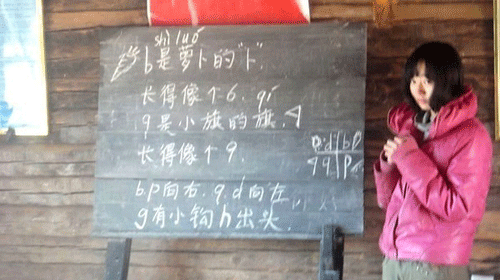 shì luó
b是萝卜的"卜".
长得像个6. qí
q是小旗的旗.
长得像个9.
p d b p
q q p
b.p向右. q.d向左
g有小钩 h出头.